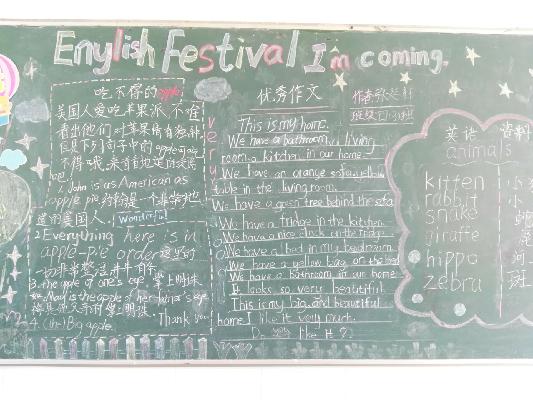 English Festival I'm coming.
吃不得的apple
美国人爱吃苹果派,不难
看出他们对苹果情有独钟
但是下列句子中的apple可
不得哦,来看看
吧!
1. John is as American as
apple pie.约翰是一个非常地
道的美国人. Wonderful
2.Everything here is in
apple-pie order.这里的
一切非常整洁井井有条
3. the apple of one's eye. 掌上明珠
Mary is the apple of her father's eye
4. (the) Big apple.
Thank you
优秀作文
作者:
班级:
This is my home.
We have a bathroom, a living
room, a kitchen in our home.
We have an orange sofa, yellow
table in the living room.
We have a green tree behind the sofa.
We have a fridge in the kitchen.
We have a nice clock on the fridge.
We have a bed in my bedroom
We have a yellow bag on the bed
We have a bathroom in our home.
It looks so very beautiful.
This is my big and beautiful
home I like it very much.
Do you like it?
英语
animals
kitten
rabbit
snake
giraffe
hippo
zebra
小
蛇
鹿
河
斑